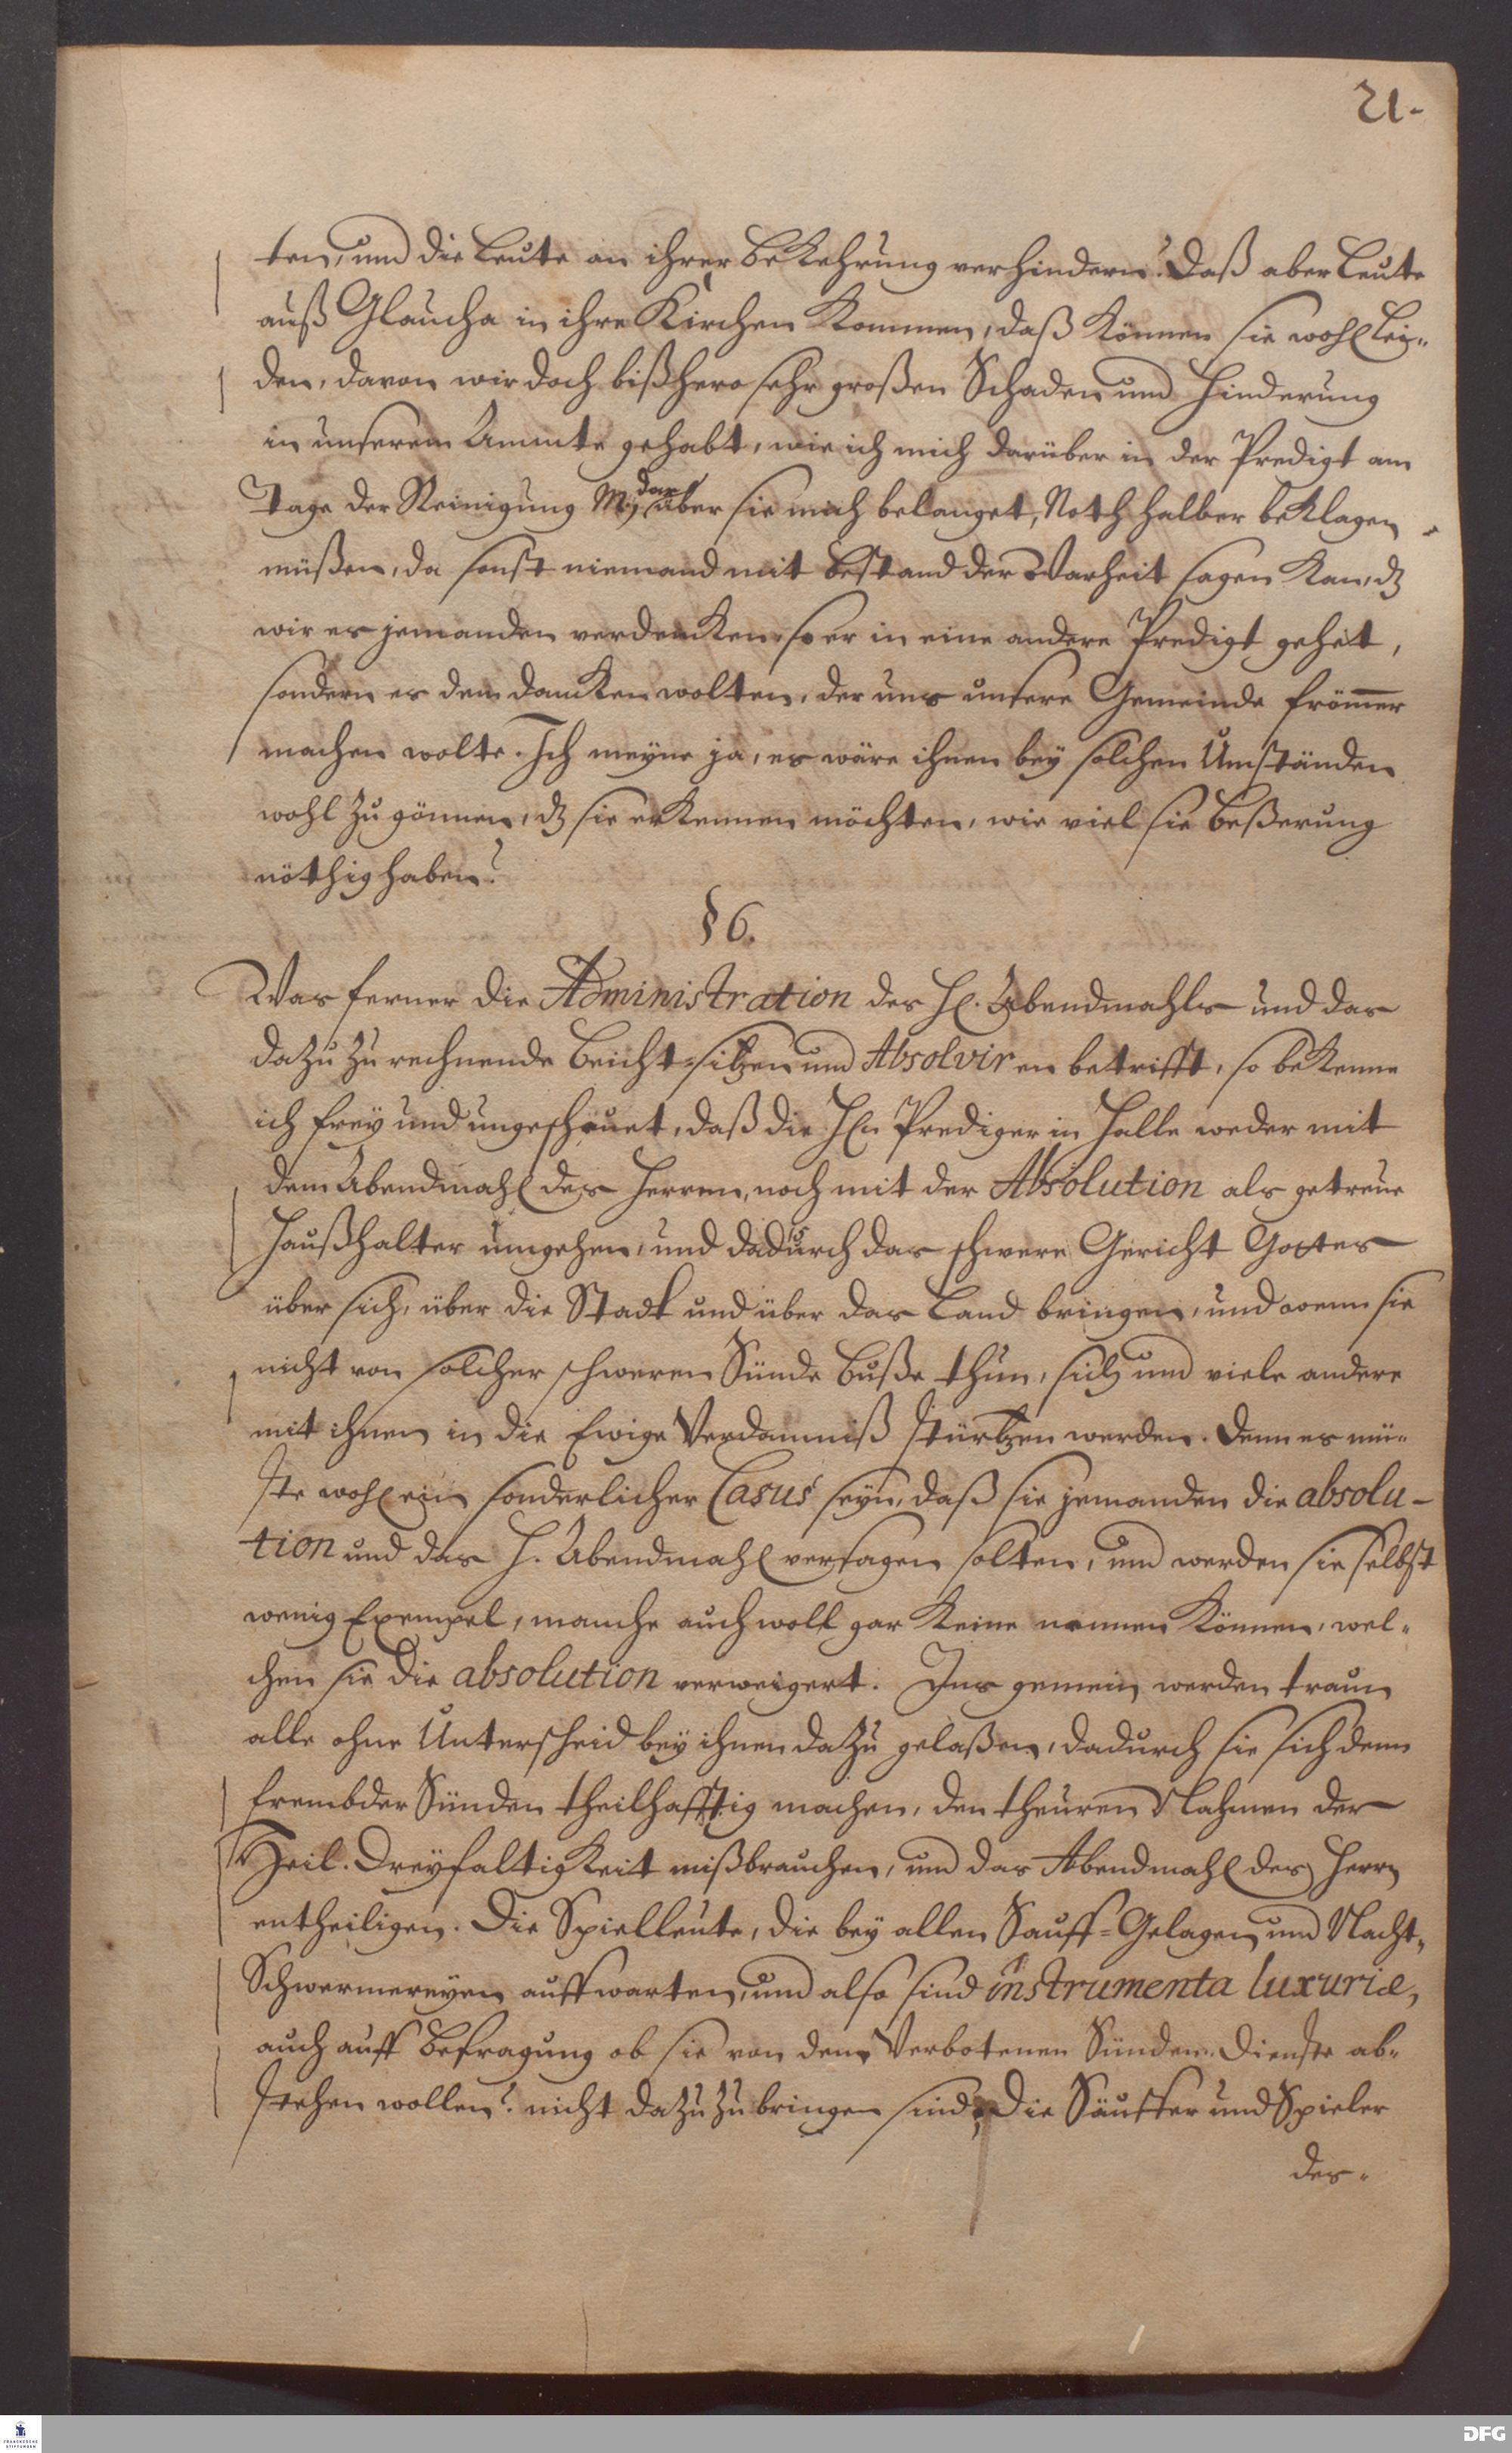 21.
ten, und die Leute an ihrer Bekehrung verhindern? Daß aber Leute
auß Glaucha in ihre Kirchen kommen, daß können sie wohl lei-
den, davon wir doch bißhero sehr großen Schaden und Hinderung
in unserem Ammte gehabt, wie ich mich darüber in der Predigt am
Tage der Reinigung M. darüber sie mich belanget, Noth halber beklagen
müßen, da sonst niemand mit Bestand der Warheit sagen kan, dz
wir es jemanden verdencken, so er in eine andere Predigt gehet,
sondern es dem dancken wolten, der uns unsere Gemeinde frömer
machen wolte. Ich meyne ja, es wäre ihnen bey solchen Umständen
wohl zu gönnen, dz sie erkennen möchten, wie viel sie Beßerung
nöthig haben?
§ 6.
Was ferner die Administration des Hl. Abendmahls und das
dazu zu rechnende Beicht-sitzen und Absolviren betrifft, so bekenne
ich frey und ungescheuet, daß die Hln Prediger in Halle weder mit
dem Abendmahl des Herren, noch mit der Absolution als getreue
Haußhalter umgehen, und dadurch das schwere Gericht Gottes
über sich, über die Stadt und über das Land bringen, und wenn sie
nicht von solcher schweren Sünde Buße thun, sich und viele andere
mit ihnen in die Ewige Verdamniß stürtzen werden. Denn es mü-
ste wohl ein sonderlicher Casus seyn, daß sie jemanden die absolu-
tion und das H. Abendmahl versagen solten, und werden sie selbst
wenig Exempel, manche auch woll gar keine nennen können, wel-
chen sie die absolution verweigert. Ins gemein werden traun
alle ohne Unterscheid bey ihnen dazu gelaßen, dadurch sie sich denn
frembder Sünden theilhafftig machen, den theuren Nahmen der
Heil. Dreyfaltigkeit mißbrauchen, und das Abendmahl des Herrn
entheiligen. Die Spielleute, die bey allen Sauff-Gelagen und Nacht-
Schwermereyen auffwarten, und also sind instrumenta luxuriæ,
auch auff Befragung ob sie von dem Verbotenen Sünden-Dienste ab-
stehen wollen? nicht dazu zu bringen sind, Die Säuffer und Spieler
des-
FRANCKESCHE
STIFTUNGEN
DFG